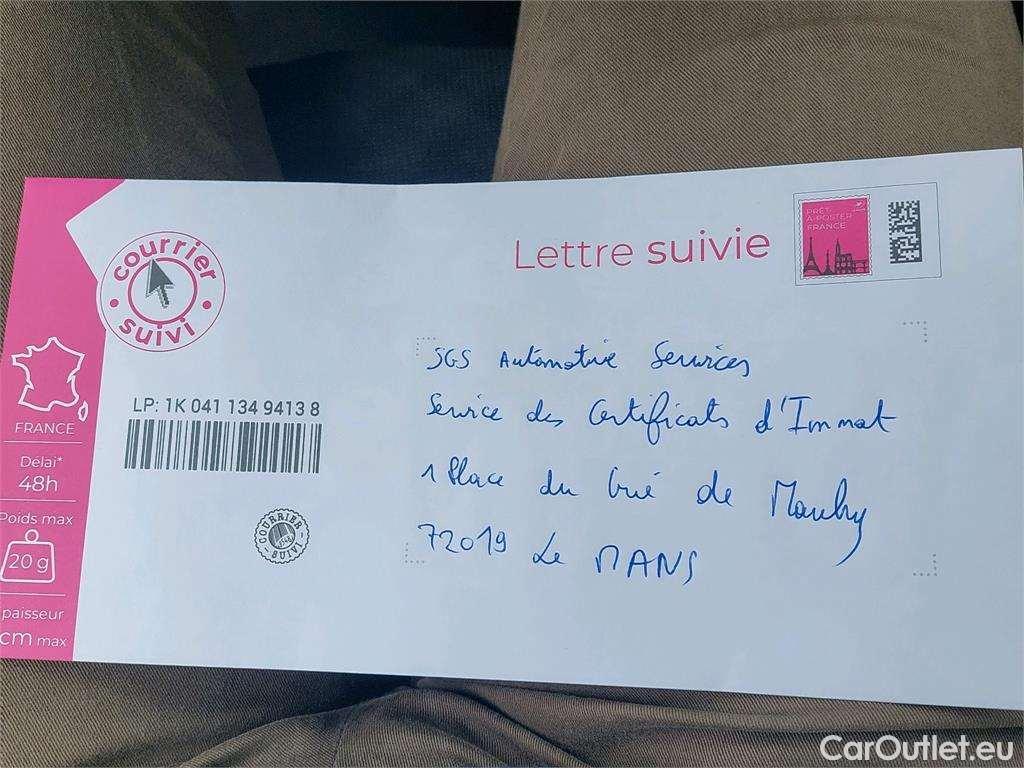 courrier
suivi
Lettre suivie
PRÊT-
À-POSTER
FRANCE
SGS Automotive Services
Service des Certificats d'Immat
1 Place du Gué de Maulny
72019 Le MANS
LP: 1K 041 134 9413 8
COURRIER
SUIVI
FRANCE
Délai*
48h
Poids max
20 g
paisseur
cm max
CarOutlet.eu